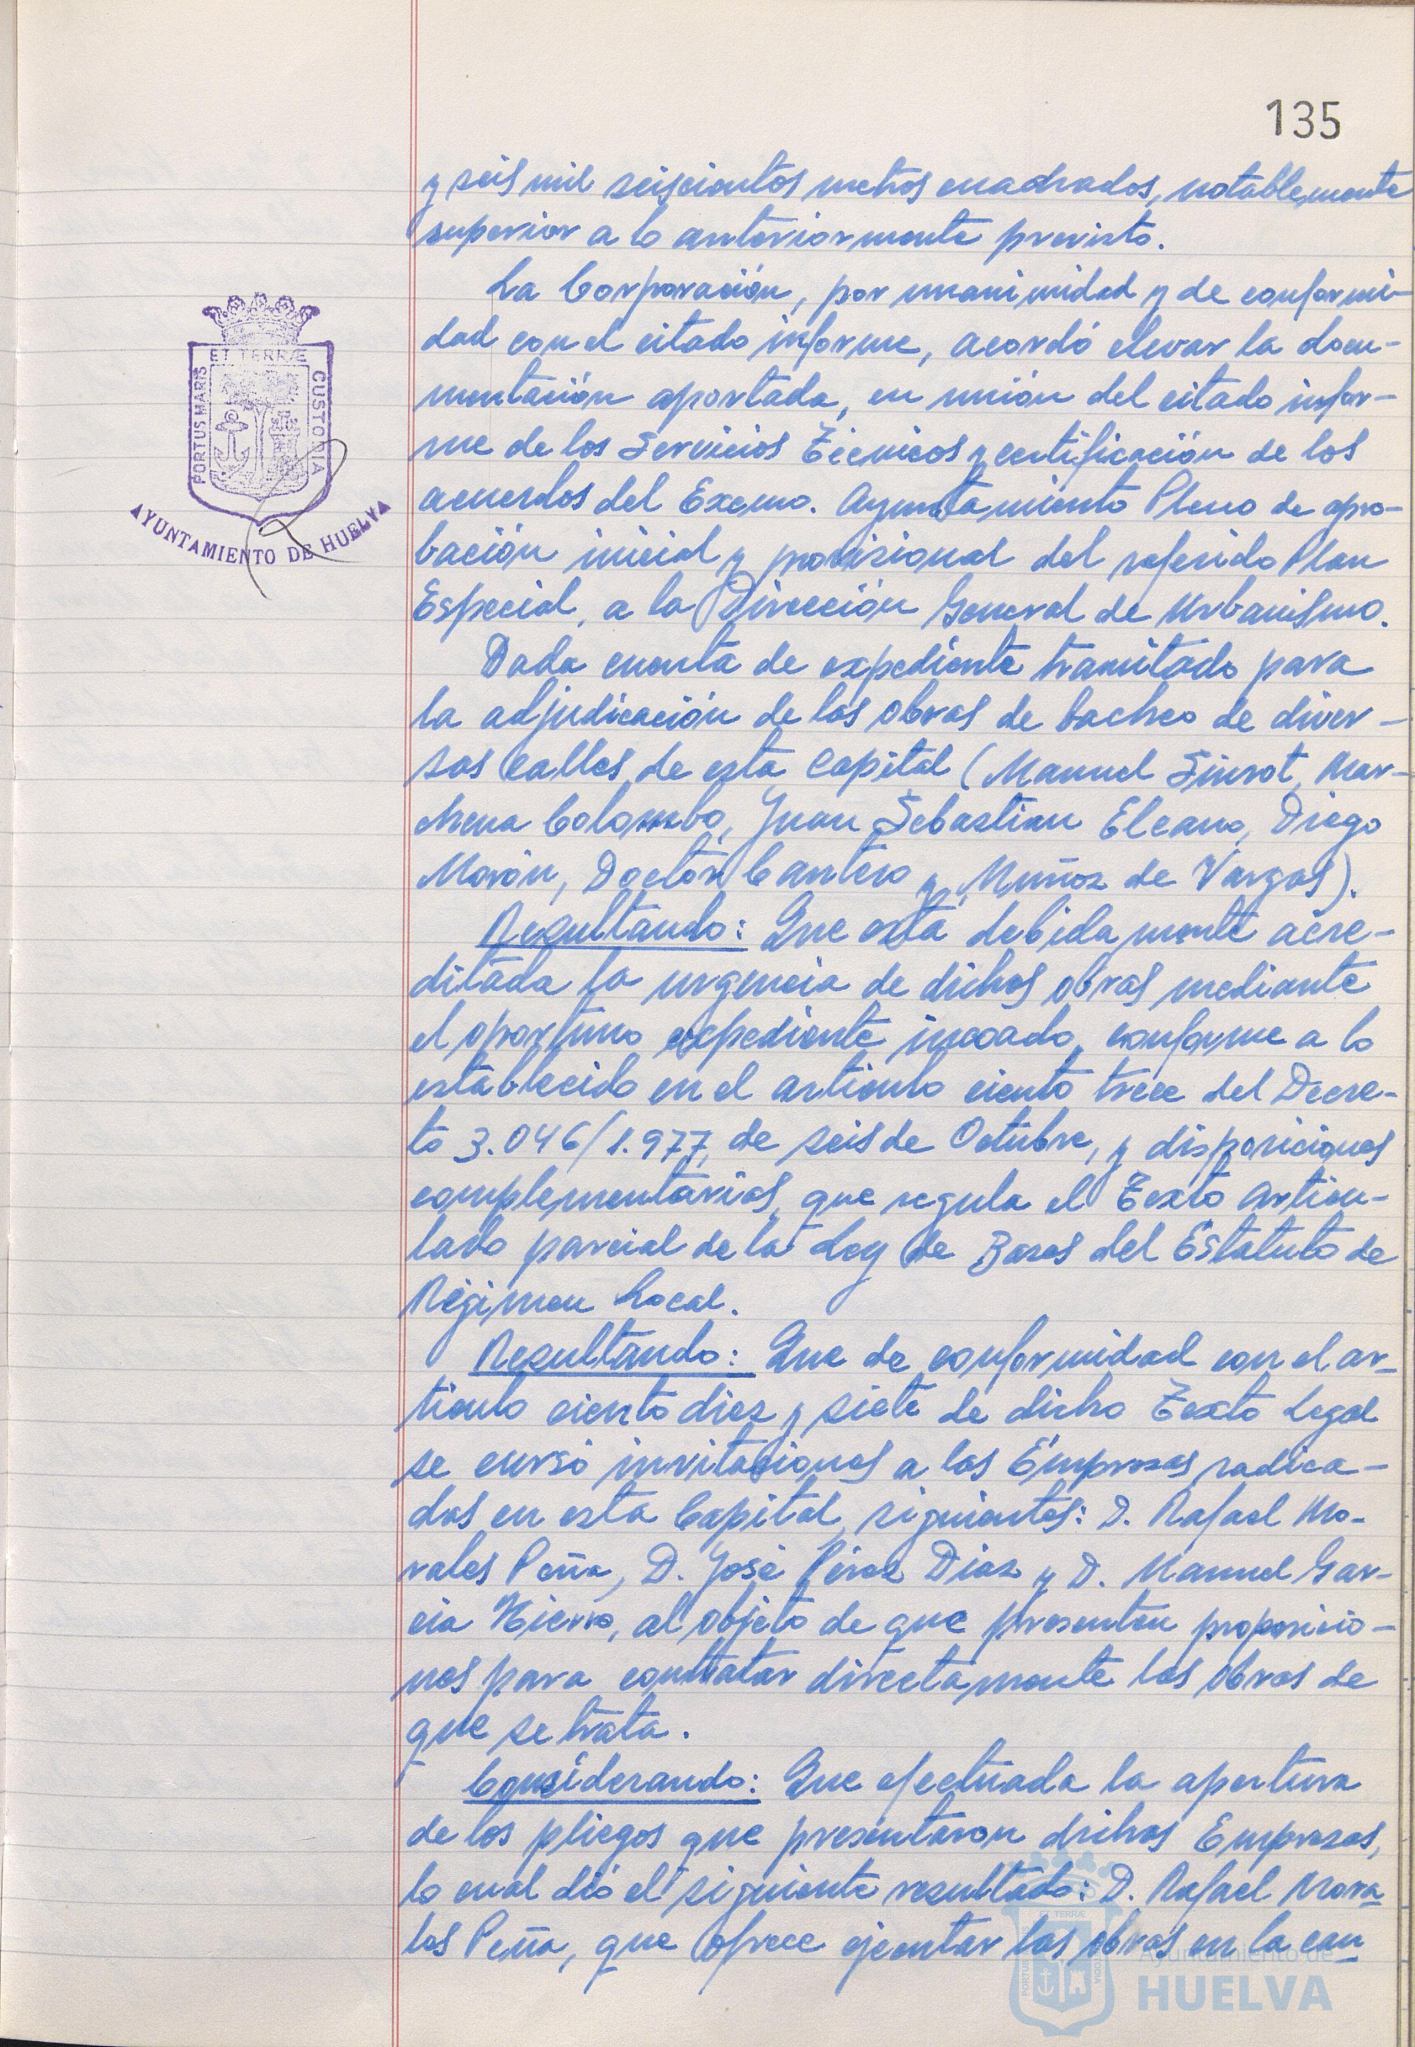 135
y seis mil seiscientos metros cuadrados, notablemente
superior a lo anteriormente previsto.
La Corporación, por unanimidad y de conformi-
dad con el citado informe, acordó elevar la docu-
mentación aportada, en unión del citado infor-
me de los Servicios Técnicos y certificación de los
acuerdos del Excmo. Ayuntamiento Pleno de apro-
bación inicial y provisional del referido Plan
Especial, a la Dirección General de Urbanismo.
Dada cuenta de expediente tramitado para
la adjudicación de las obras de bacheo de diver-
sas calles de esta Capital (Manuel Siurot, Mar-
chena Colombo, Juan Sebastian Elcano, Diego
Morón, Doctor Cantero y Muñoz de Vargas).
Resultando: Que está debidamente acre-
ditada la urgencia de dichas obras mediante
el oportuno expediente incoado, conforme a lo
establecido en el articulo ciento trece del Decre-
to 3.046/1.977, de seis de Octubre, y disposiciones
complementarias, que regula el Texto articu-
lado parcial de la Ley de Bases del Estatuto de
Régimen Local.
Resultando: Que de conformidad con el ar-
ticulo ciento diez y siete de dicho Texto Legal
se cursó invitaciones a las Empresas radica-
das en esta Capital, siguientes: D. Rafael Mo-
rales Peña, D. José Pérez Diaz y D. Manuel Gar-
cia Hierro, al objeto de que presenten proposicio-
nes para contratar directamente las obras de
que se trata.
Considerando: Que efectuada la apertura
de los pliegos que presentaron dichas Empresas,
lo cual dió el siguiente resultado: D. Rafael Mora-
les Peña, que ofrece ejecutar las obras en la can-
PORTUS MARIS
ET TERRÆ
CUSTODIA
AYUNTAMIENTO DE HUELVA
Ayuntamiento de
HUELVA